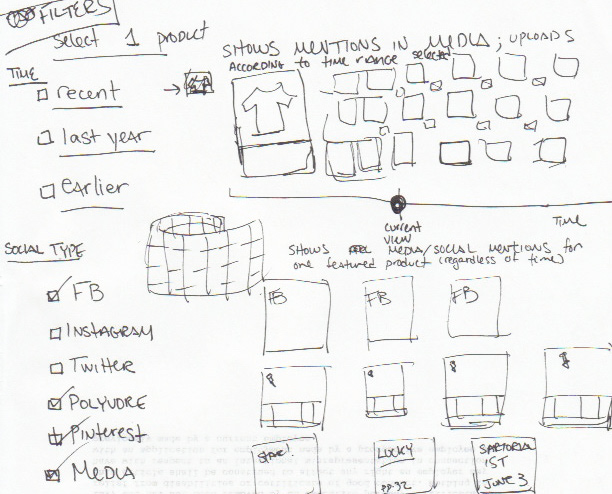 FILTERS
Select 1 product
SHOWS MENTIONS IN MEDIA; UPLOADS
ACCORDING to time range selected
TIME
recent
last year
earlier
current
view
Time
SOCIAL TYPE
SHOWS MEDIA/SOCIAL MENTIONS for
one featured product (regardless of time)
FB
INSTAGRAM
TwitteR
POLYVORE
Pinterest
MEDIA
FB
FB
FB
LUCKY
pp. 32
SARTORIA
IST
JUNE 3